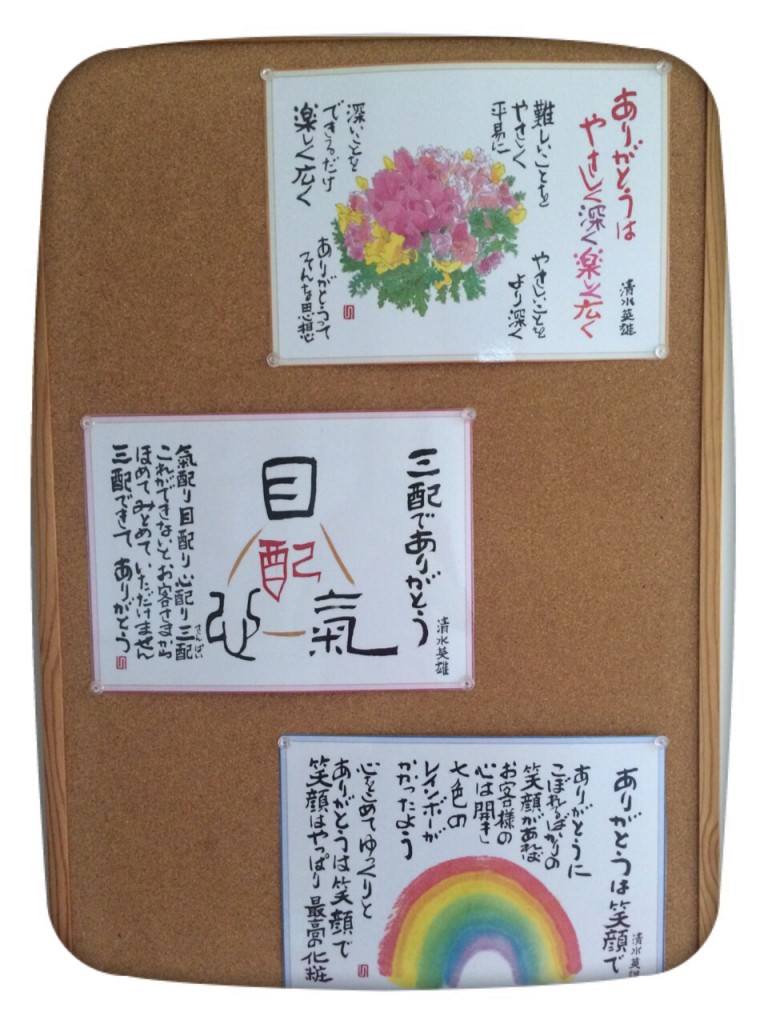 ありがとうは
やさしく深く楽しく広く
清水英雄
難しいことを
やさしく
平易に
やさしいことを
より深く
深いことを
できるだけ
楽しく広く
ありがとうって
そんな思想
三配でありがとう
清水英雄
目
配
心
氣
氣配り目配り心配り三配
さんぱい
これができないとお客さまから
ほめてみとめていただけません
三配できて ありがとう
ありがとうは笑顔で
清水英雄
ありがとうに
こぼれるばかりの
笑顔があれば
お客様の
心は開き
七色の
レインボーが
かかったよう
心をこめてゆっくりと
ありがとうは笑顔で
笑顔はやっぱり最高の化粧